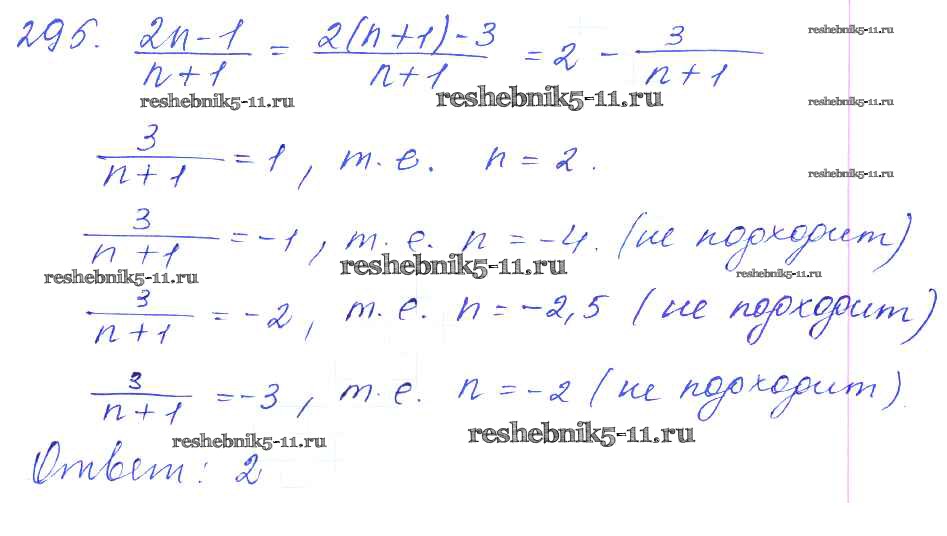 295. (2n-1)/(n+1) = (2(n+1)-3)/(n+1) = 2 - 3/(n+1)
reshebnik5-11.ru
reshebnik5-11.ru reshebnik5-11.ru reshebnik5-11.ru
3/(n+1) = 1, т.е. n = 2.
reshebnik5-11.ru
3/(n+1) = -1, т.е. n = -4. (не подходит)
reshebnik5-11.ru reshebnik5-11.ru reshebnik5-11.ru
3/(n+1) = -2, т.е. n = -2,5 (не подходит)
3/(n+1) = -3, т.е. n = -2 (не подходит).
reshebnik5-11.ru reshebnik5-11.ru
Ответ: 2